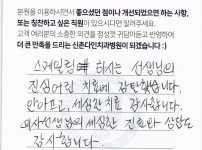 본원을 이용하시면서 좋으셨던 점이나 개선되었으면 하는 사항,
또는 칭찬하고 싶은 직원이 있으시다면 알려주세요.
고객 여러분의 소중한 의견을 정성껏 귀담아듣고 반영하여
더 큰 만족을 드리는 신촌다인치과병원이 되겠습니다 :)
스케일링 하시는 선생님의
진심어린 치료에 감탄했습니다.
안아프고, 세심한 치료 감사합니다.
의사선생님의 세심한 진료와 상담도
감사합니다.